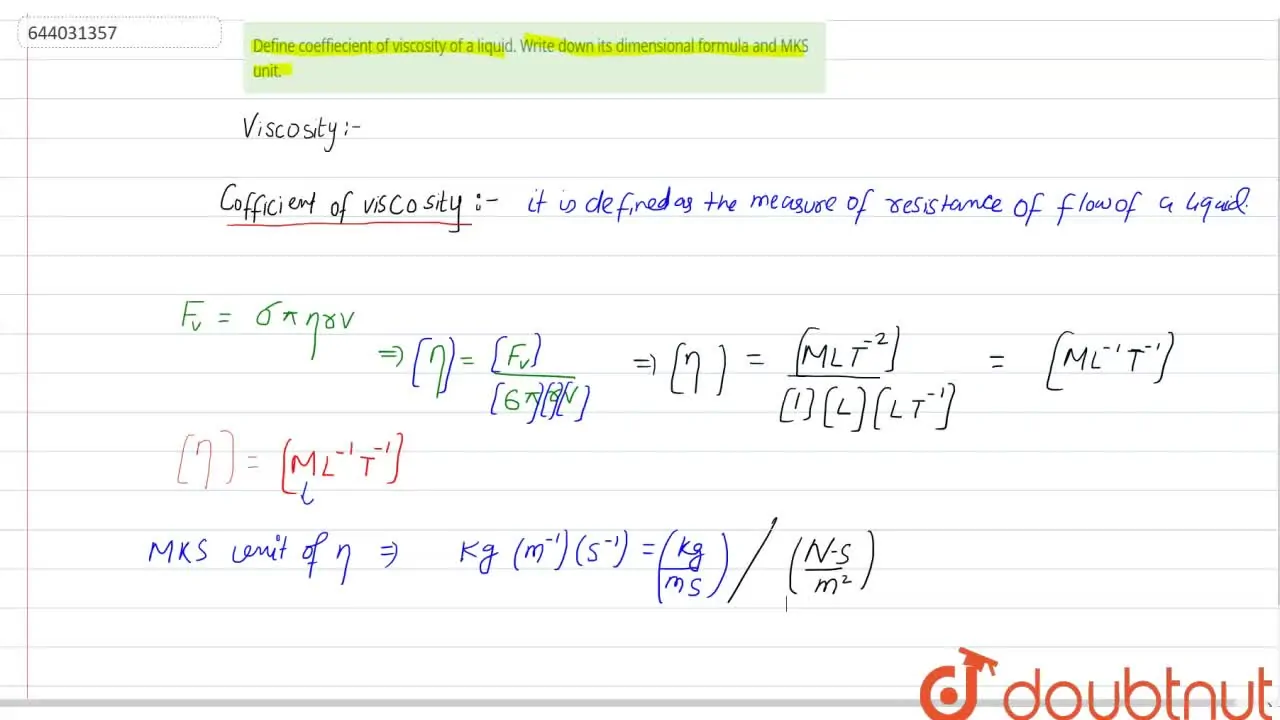 644031357
Define coeffiecient of viscosity of a liquid. Write down its dimensional formula and MKS
unit.
Viscosity :-
Cofficient of viscosity :- it is defined as the measure of resistance of flow of a liquid.
Fv = 6πηrv
⇒ [η] = [Fv] / [6π][r][v] ⇒ [η] = [MLT⁻²] / [1][L][LT⁻¹] = [ML⁻¹T⁻¹]
[η] = [ML⁻¹T⁻¹]
MKS unit of η ⇒ Kg (m⁻¹)(s⁻¹) = (kg/ms) / (N-S/m²)
doubtnut